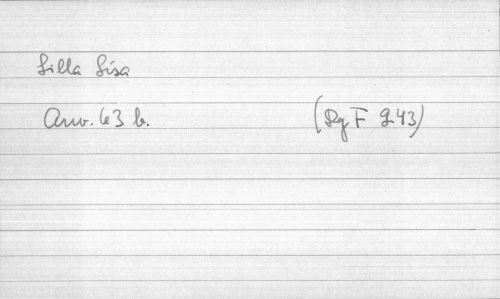 Lilla Lisa
Arw. 63 b. (Dg F 243)